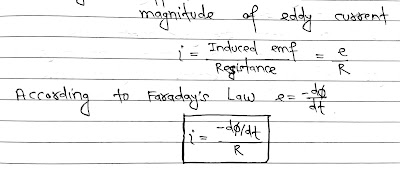 magnitude of eddy current
i = Induced emf / Resistance = e / R
According to Faraday's Law e = -dϕ/dt
i = -dϕ/dt / R